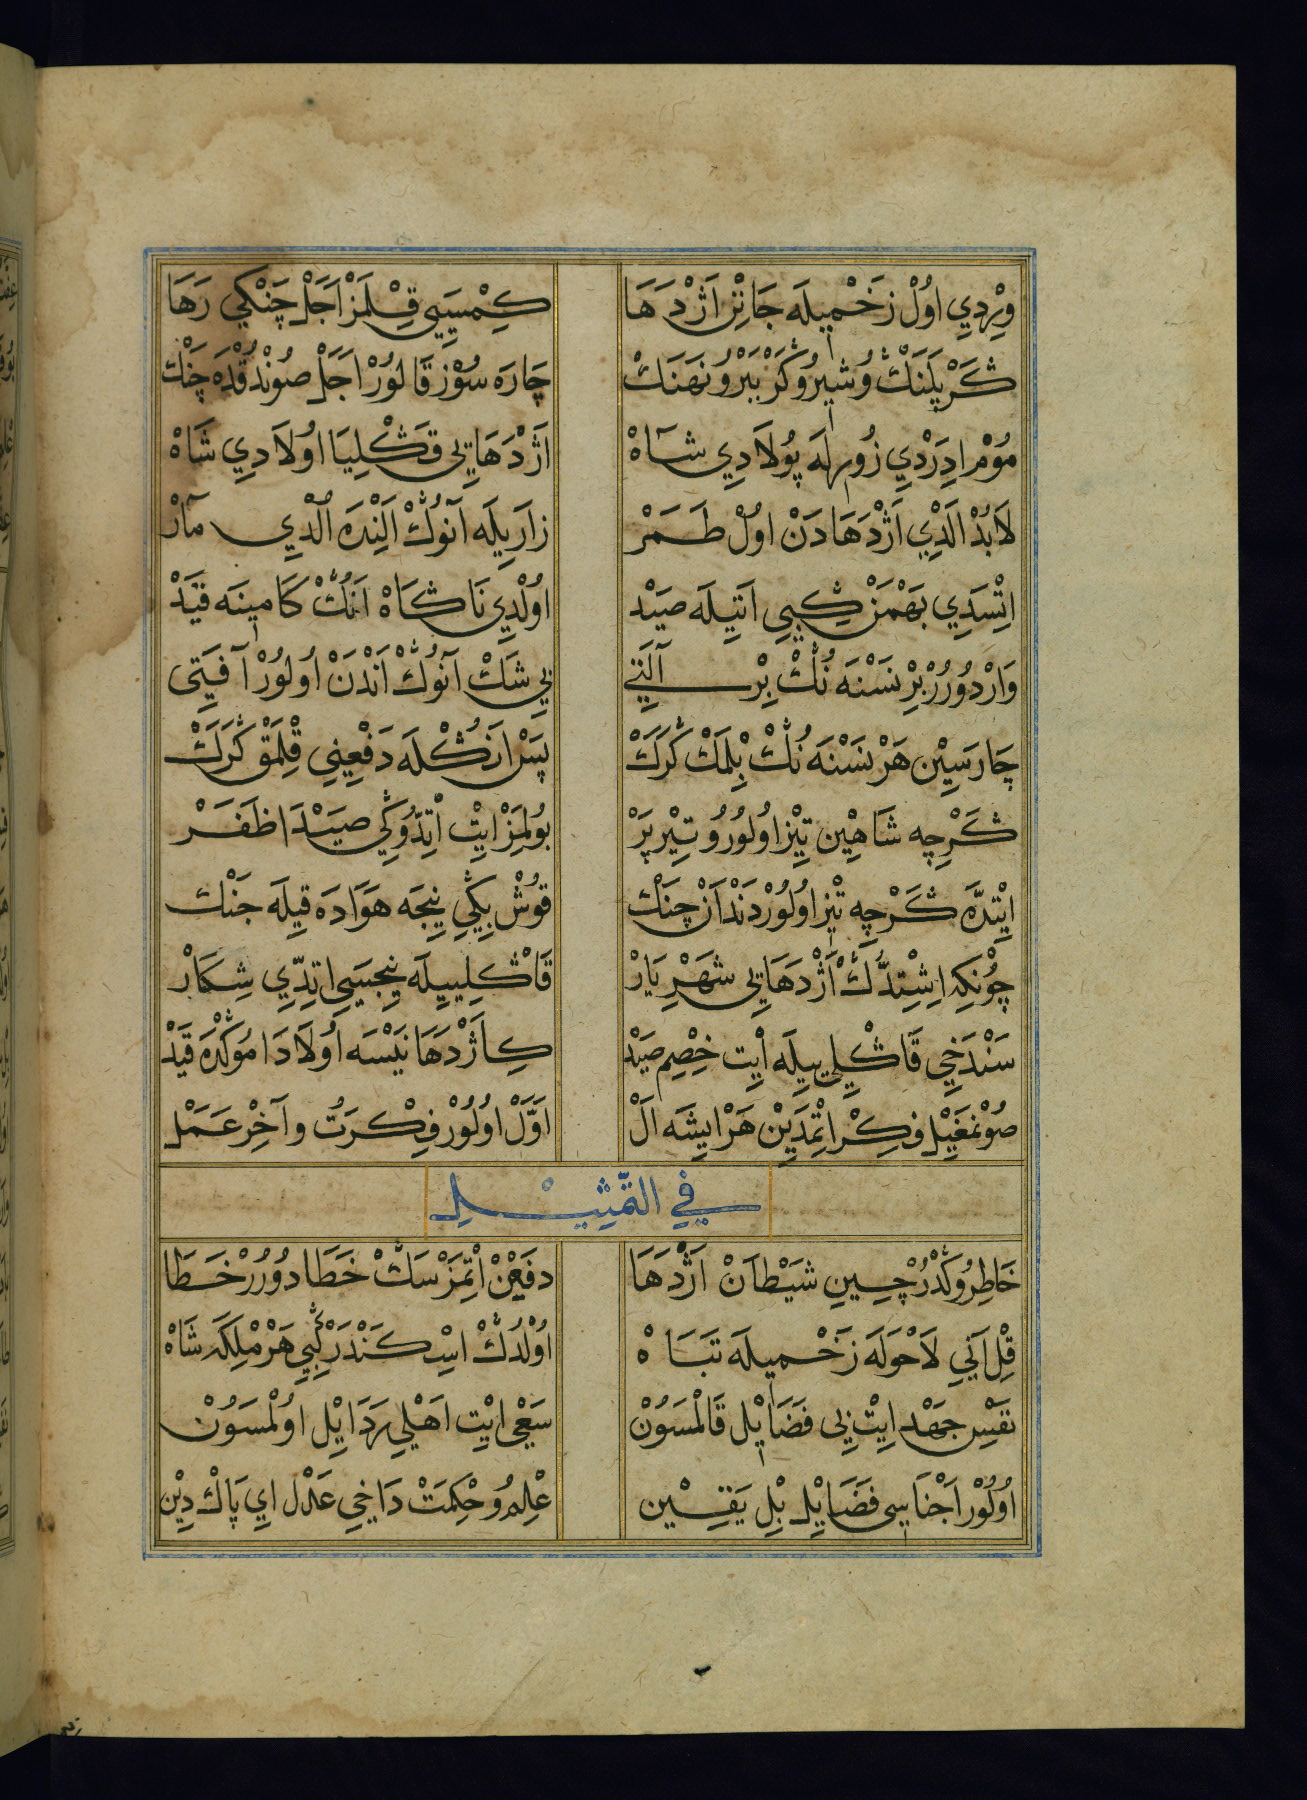 وِيْرِدِي اوُلْ زَخْمِيلَه جَانِنْ اَژْدَهَا كِمْسَيِي قِلْمَزْ اَجَلْ چَنْكِي رَهَا
كَرْ پَلَنْك وُ شِيرُ وُ كَرْ بَبْرُ وُ نَهَنَكْ چَارَه سُوْز قَالُورْ اَجَلْ صُونْدُقْدَه چَنْك
مُوْم اِدَرْدِي زُورِلَه پُولَادِي شَاهْ اَژْدَهَايِي قَكْلِيَا اوُلَادِي شَاهْ
لَابُدْ اَلَدِي اَژْدَهَادَنْ اوُلْ طَمَرْ زَارِيلَه آنوُكْ اَلِنْدَه اُلْدِي مَارْ
اِتْسَدِي بَهْمَنْ كِبِي اَنِيلَه صَيْد اوُلْدِي نَاكَاهْ اَنُكْ كَامِينَه قَيَدْ
وَارْدُورُرْ بِرْ نَسْنَه نُكْ بِرْ آلَتِي بِي شَكْ آنوُكْ اَنْدَنْ اوُلُورْ آفَتِي
چَارَسِيْن هَرْ نَسْنَه نُكْ بِلْمَكْ كَرَكْ پَسْ اَنُكْلَه دَفْعِنِي قِلْمَقْ كَرَكْ
كَرْچِه شَاهِيْن تِيْز اوُلُورُ وُ تِيْر پَرْ بُولِمَزْ اِيتْ اِتْدُوكِي صَيْدَا ظَفَرْ
اِيْتِدَه كَرْچِه تِيْز اوُلُورْ دَنْدَانْ چَنَكْ قوُشْ بِكِي نِيجَه هَوَادَه قِيلَه جَنْك
چُونكِه اِشِتْدُكْ اَژْدَهَايِي شَهْرِيَارْ قَاكْلِيِيلَه نِيجَسِي اِتْدِي شِكَارْ
سَنْدَخِي قَاكْلِيِيلَه اِيْت خِصْم صَيْد كِاَژْدَهَا نَيْسَه اوُلَادَا مُوكْدَه قَيَدْ
صُوْنْمَغِيل فِكِرْ اِتْمَدِيْن هَرْ اِيشَه اَلْ اَوَّلْ اوُلُورْ فِكْرَتْ وآخِرْ عَمَلْ
فِي التَّمْثِيْلِ
خَاطِرُوكْدُرْ چِينِ شَيْطَانْ اَژْدَهَا دفَعِنْ اِتْمَزْسَكْ خَطَادُورُرْ خَطَا
قِلْ اَنِي لَاحَوْلَه زَخْمِيلَه تَبَاهْ اوُلْدُكْ اِسْكَنْدَرْ كِبِي هَرْ مُلْكَه شَاهْ
نَفَسْ جَهْد اِيْتْ بِي فَضَايْل قَالْمَسَوُنْ سَعْي اِيْتْ اَهْلِي رَدَايِلْ اوُلْمَسَوُنْ
اوُلُوْر اَجْنَاسِي فَضَايِلْ بِلْ يَقِيْن عْلِمُ وُ حْكِمَتْ دَاخِي عَدْل اَيِ پَاكْ دِيْن